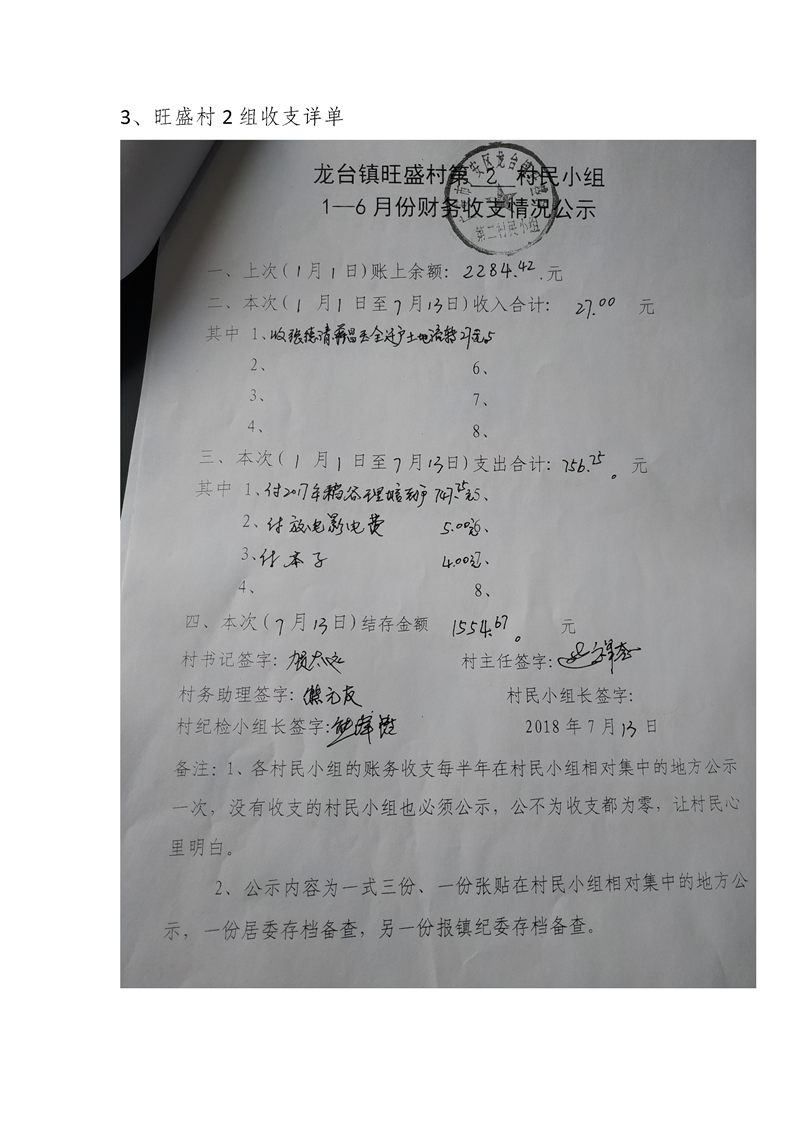 3、旺盛村2组收支详单
龙台镇旺盛村第 2 村民小组
1—6月份财务收支情况公示
安区龙台镇
第二村民小组
一、上次(1月1日)账上余额：2284.42.元
二、本次(1月1日至7月13日)收入合计： 27.00 元
其中 1、收张德清 昌 全 户土地流转27元5、
2、 6、
3、 7、
4、 8、
三、本次(1月1日至7月13日)支出合计：756.25。元
其中 1、付2017年 谷 理赔到户747.25元5、
2、付放电影电费 5.00元6、
3、付本子 4.00元7、
4、 8、
四、本次(7月13日)结存金额 1554.67。 元
村书记签字： 村主任签字：
村务助理签字：熊元友 村民小组长签字：
村纪检小组长签字： 2018年7月13日
备注：1、各村民小组的账务收支每半年在村民小组相对集中的地方公示
一次，没有收支的村民小组也必须公示，公不为收支都为零，让村民心
里明白。
2、公示内容为一式三份、一份张贴在村民小组相对集中的地方公
示，一份居委存档备查，另一份报镇纪委存档备查。